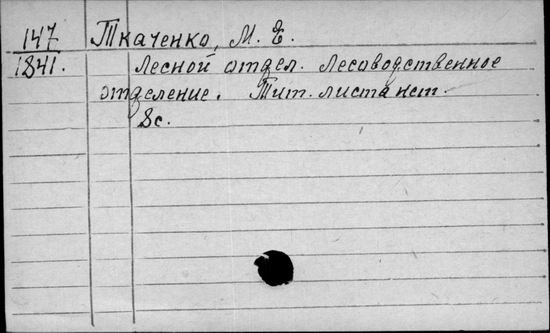 147 Ткаченко, М. Е.
1841. Лесной отдел. Лесоводственное
отделение. Тит. листа нет.
8с.